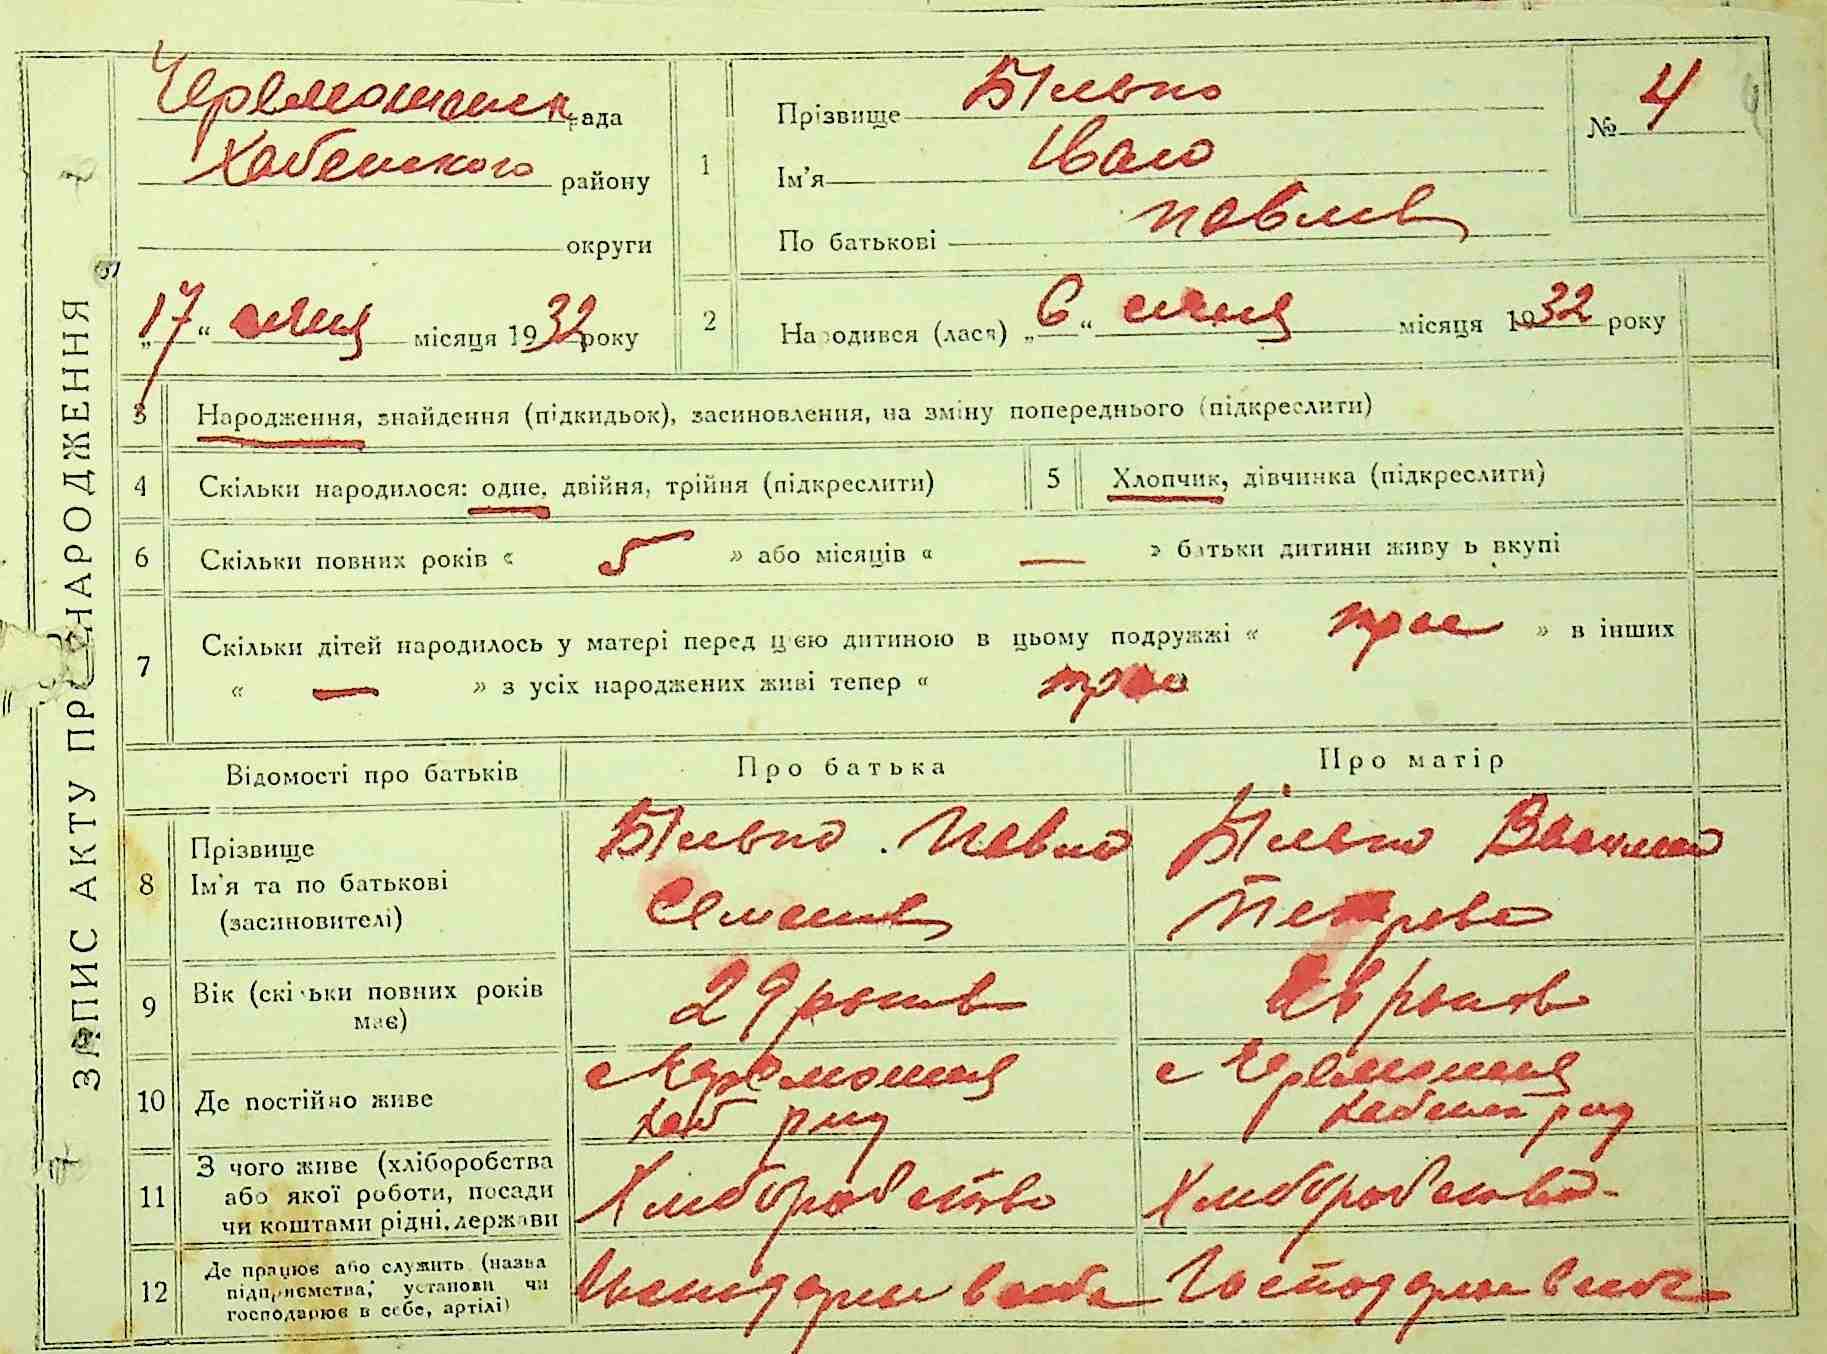 ЗАПИС АКТУ ПРО НАРОДЖЕННЯ
рада
Хабенского району
округи
„17“ січня місяця 1932 року
1
Прізвище Білько
Ім'я Іван
По батькові Павлов
№ 4
2
Народився (лася) „6“ січня місяця 1932 року
3 Народження, знайдення (підкидьок), засиновлення, на зміну попереднього (підкреслити)
4 Скільки народилося: одне, двійня, трійня (підкреслити)
5 Хлопчик, дівчинка (підкреслити)
6 Скільки повних років « 5 » або місяців « — » батьки дитини живуть вкупі
7 Скільки дітей народилось у матері перед цією дитиною в цьому подружжі « троє » в інших
« — » з усіх народжених живі тепер « троє
Відомості про батьків
Про батька
Про матір
8 Прізвище
Ім'я та по батькові
(засиновителі)
Білько Павло
Семенов
Білько
Петрова
9 Вік (скільки повних років
має)
29 років
років
10 Де постійно живе
с Черемошня
Хаб рну
с Черемошня
рну
11 З чого живе (хліборобства
або якої роботи, посади
чи коштами рідні, держави
Хліборобство
Хліборобство
12 Де працює або служить (назва
підприємства, установи чи
господарює в себе, артілі)
Господарює в себе
Господарює в себе